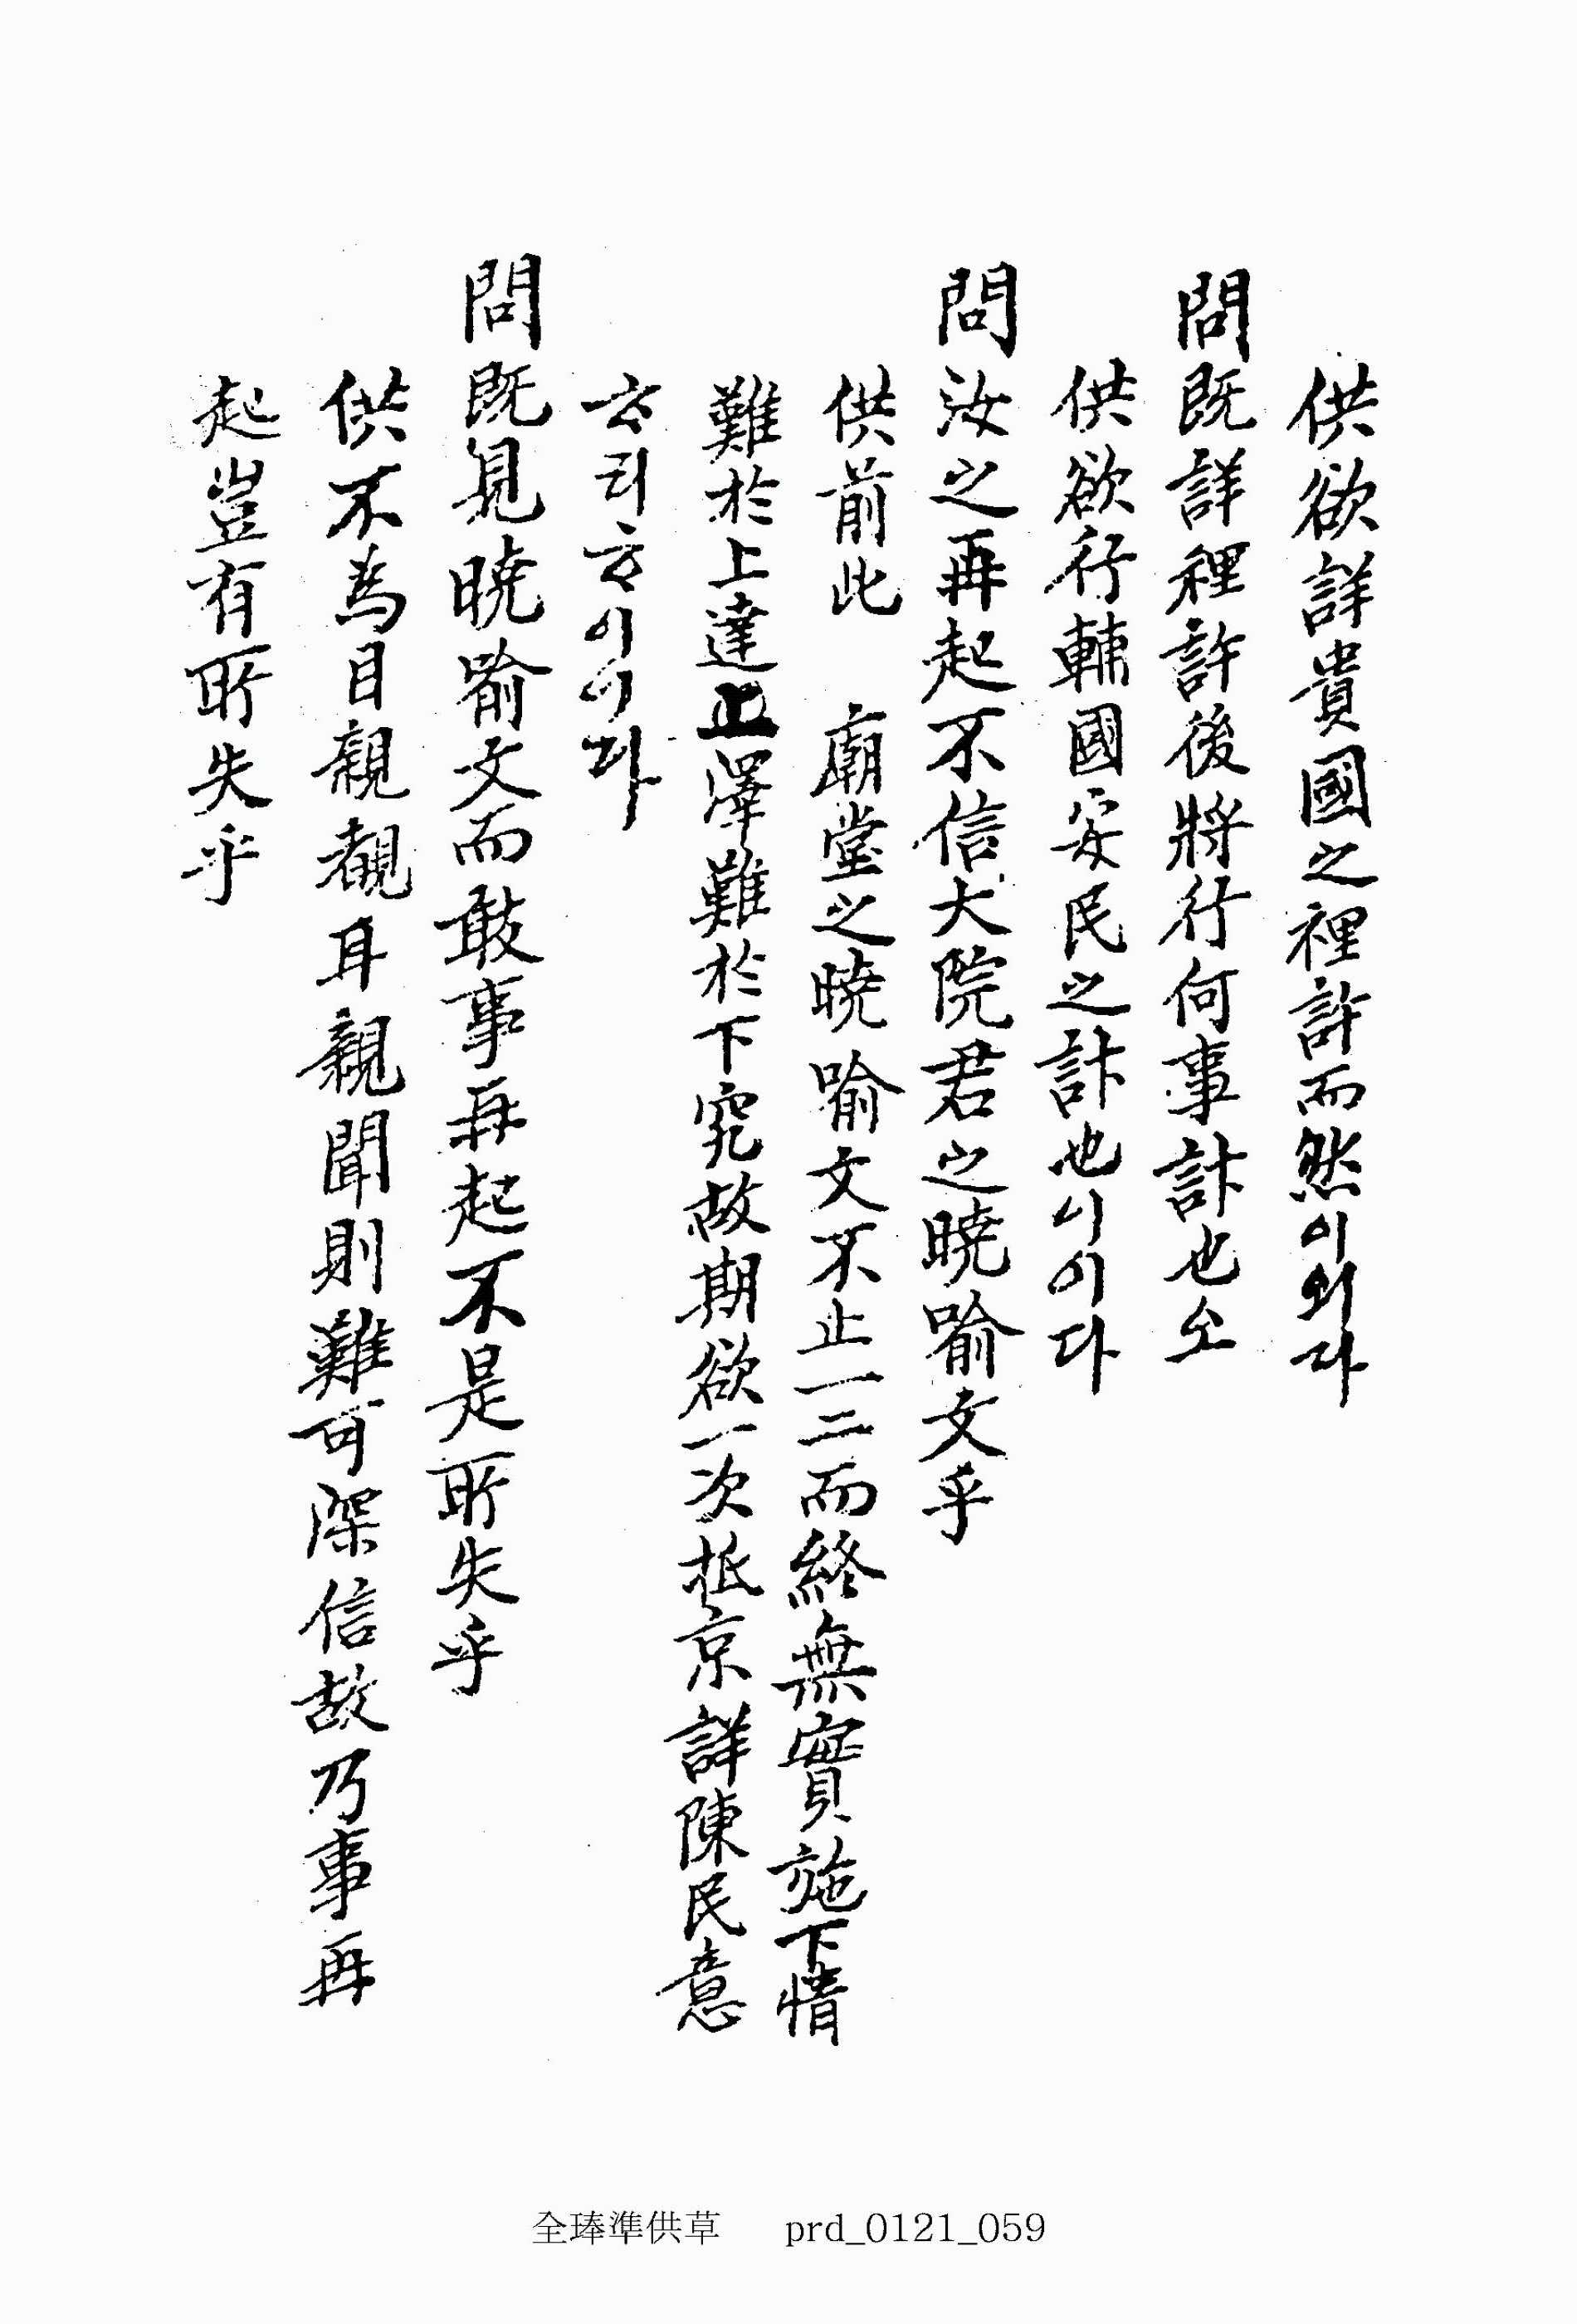 供欲詳貴國之裡許而然이외다
問既詳裡許後將行何事計也오
供欲行輔國安民之計也이이다
問汝之再起不信大院君之曉喻文乎
供前此 廟堂之曉喻文不止一二而終無實施下情
難於上達上澤難於下究故期欲一次抵京詳陳民意
云리云이이다
問既見曉喻文而敢事再起不是所失乎
供不為目親覩耳親聞則難可深信故乃事再
起豈有所失乎
全琫準供草 prd_0121_059